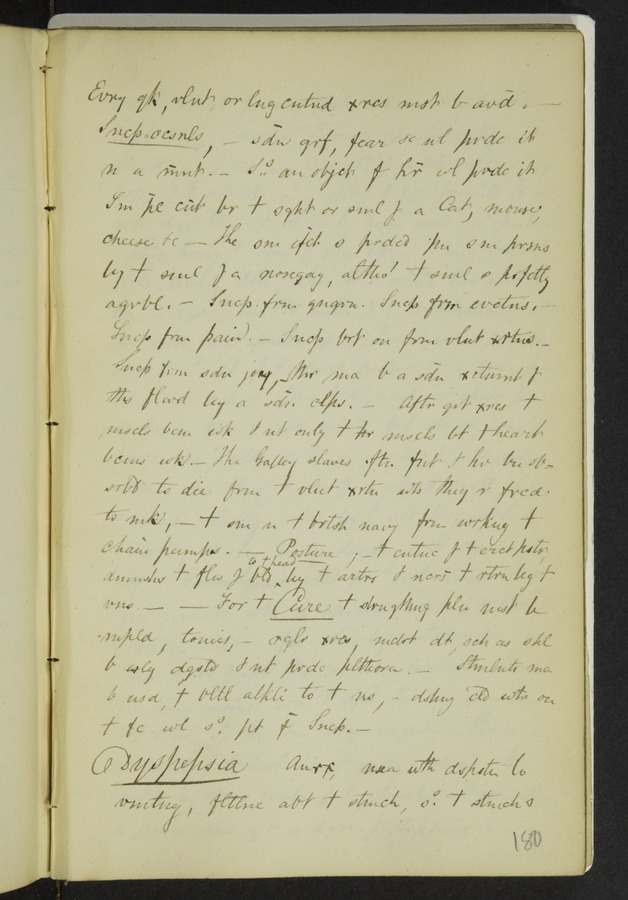 Evry qk, vlnt or lng cntnd xrcs mst b avd. —
Sncp-ocsnls, — sdn grf, fear &c wl prdc it
n a mnt. — So. an objct f hr wl prdc it
Sm ppl cnt br + sght or sml f a Cat, mouse,
cheese &c — The sm efct s prdcd pn sm prsns
by + sml f a nosegay, altho' + sml s prfctly
agrbl. — Sncp frm gngrn. Sncp frm evctns. —
Sncp frm pain. — Sncp brt on frm vlnt xrtns. —
Sncp frm sdn joy, thr ma b a sdn
ths flowd by a sdn clps. — Aftr grt xrcs +
mscls bcm wk & nt only + mscls bt + heart
bcms wk. — The Galley slaves ftn fnt & hv bn ob=
srvd to die frm + vlnt xrtn wh they r frcd
to mk, — + sm n + brtsh navy frm wrkng +
chain pumps. — Posture, — + cntnc f + erct pstr
dmnshs + flw f bld to + head by + artrs & ncrs + rtrn by +
vns. — — For + Cure + strngthng pln mst b
mpld, tonics, — rglr xrcs, mdrt dt, sch as shl
b esly dgstd & nt prdc plthora. — Stmlnts ma
b usd, + vltl alkli to + ns, — dshng cld wtr on
+ fc wl so. pt f Sncp. —
Dyspepsia Anrx, nsa wth dspstn to
vmtng, fltlnc abt + stmch, so. + stmch s
180